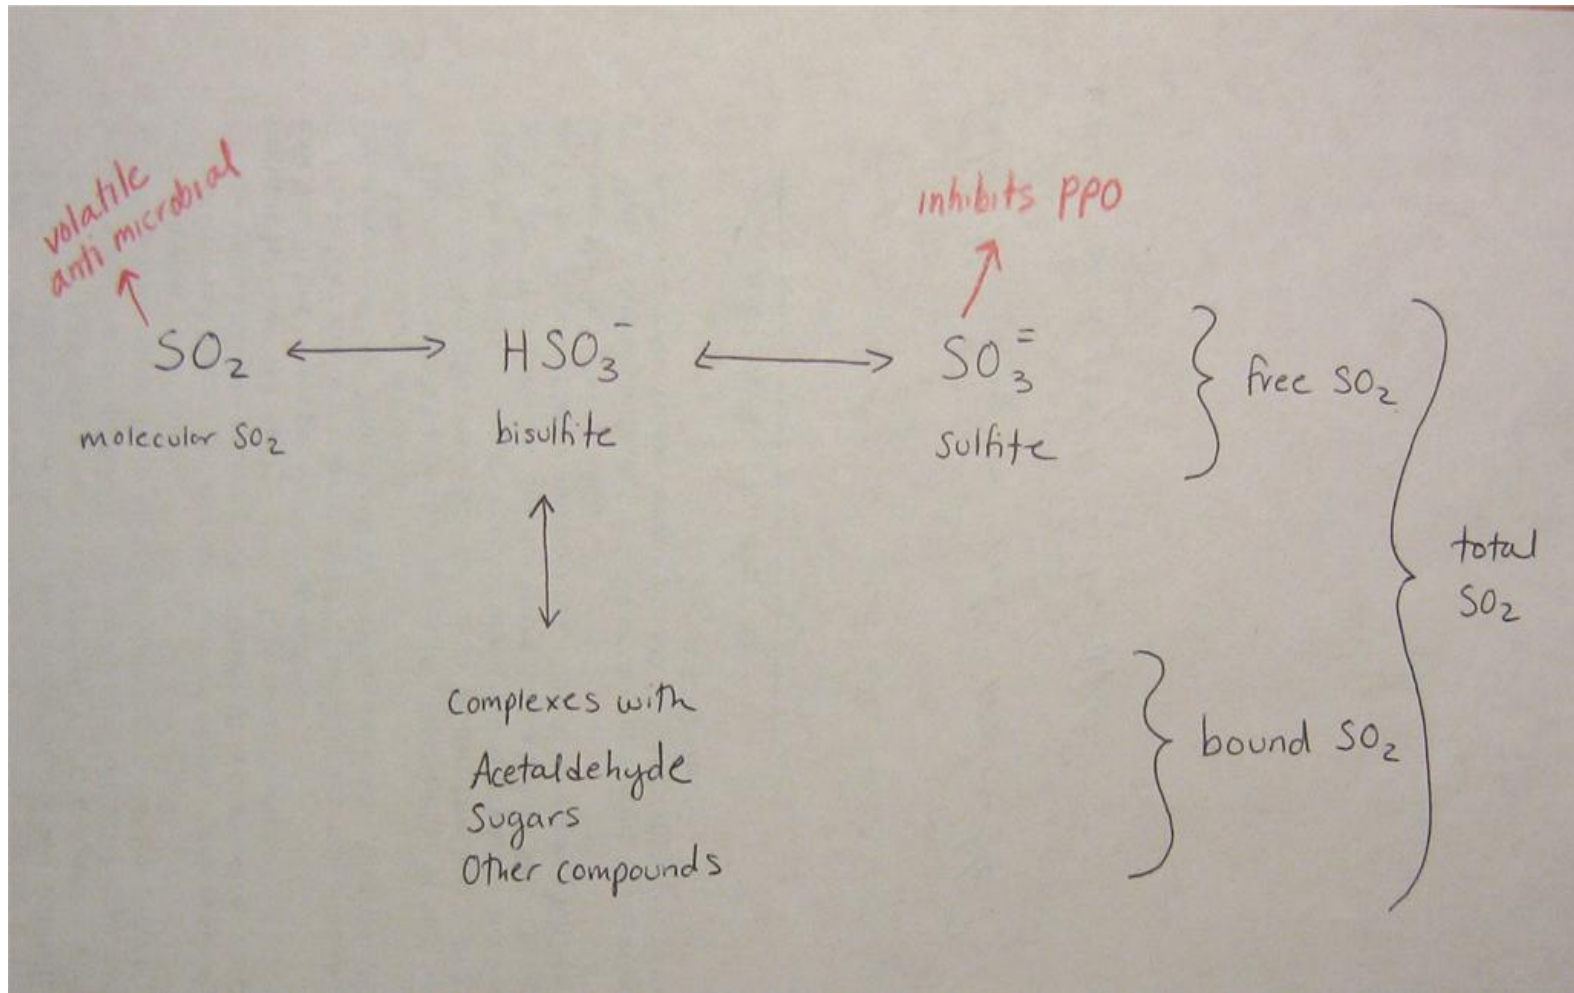 volatile
anti microbial
inhibits PPO
SO₂ ⟷ HSO₃⁻ ⟷ SO₃⁼ } free SO₂
molecular SO₂ bisulfite sulfite
total
SO₂
Complexes with
Acetaldehyde
Sugars
Other compounds
bound SO₂